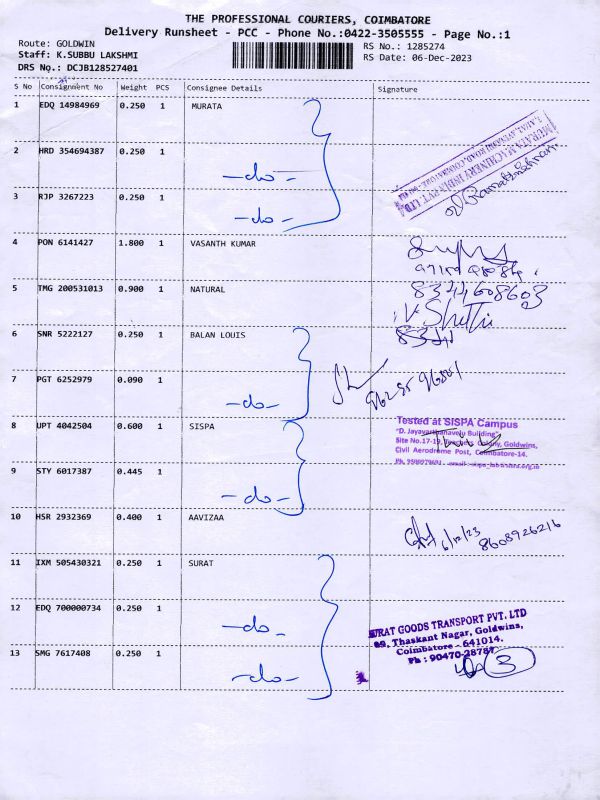 THE PROFESSIONAL COURIERS, COIMBATORE
Delivery Runsheet - PCC - Phone No.:0422-3505555 - Page No.:1
Route: GOLDWIN
RS No.: 1285274
Staff: K.SUBBU LAKSHMI
RS Date: 06-Dec-2023
DRS No.: DCJB128527401
S No Consignment No Weight PCS Consignee Details Signature
1 EDQ 14984969 0.250 1 MURATA
2 HRD 354694387 0.250 1
-do-
MURATA MACHINERY INDIA PVT. LTD.
3 RJP 3267223 0.250 1
-do-
4 PON 6141427 1.800 1 VASANTH KUMAR
5 TMG 200531013 0.900 1 NATURAL
8344608603
6 SNR 5222127 0.250 1 BALAN LOUIS
7 PGT 6252979 0.090 1
-do-
8 UPT 4042504 0.600 1 SISPA
Tested at SISPA Campus
"D. Jayavarthanavelu Building"
Site No.17-19, Colony, Goldwins,
Civil Aerodrome Post, Coimbatore-14.
9 STY 6017387 0.445 1
-do-
10 HSR 2932369 0.400 1 AAVIZAA
6/12/23
8608926216
11 IXM 505430321 0.250 1 SURAT
12 EDQ 700000734 0.250 1
-do-
SURAT GOODS TRANSPORT PVT. LTD
Thaskant Nagar, Goldwins,
Coimbatore - 641014.
Ph : 90470-28787
13 SMG 7617408 0.250 1
-do-
3